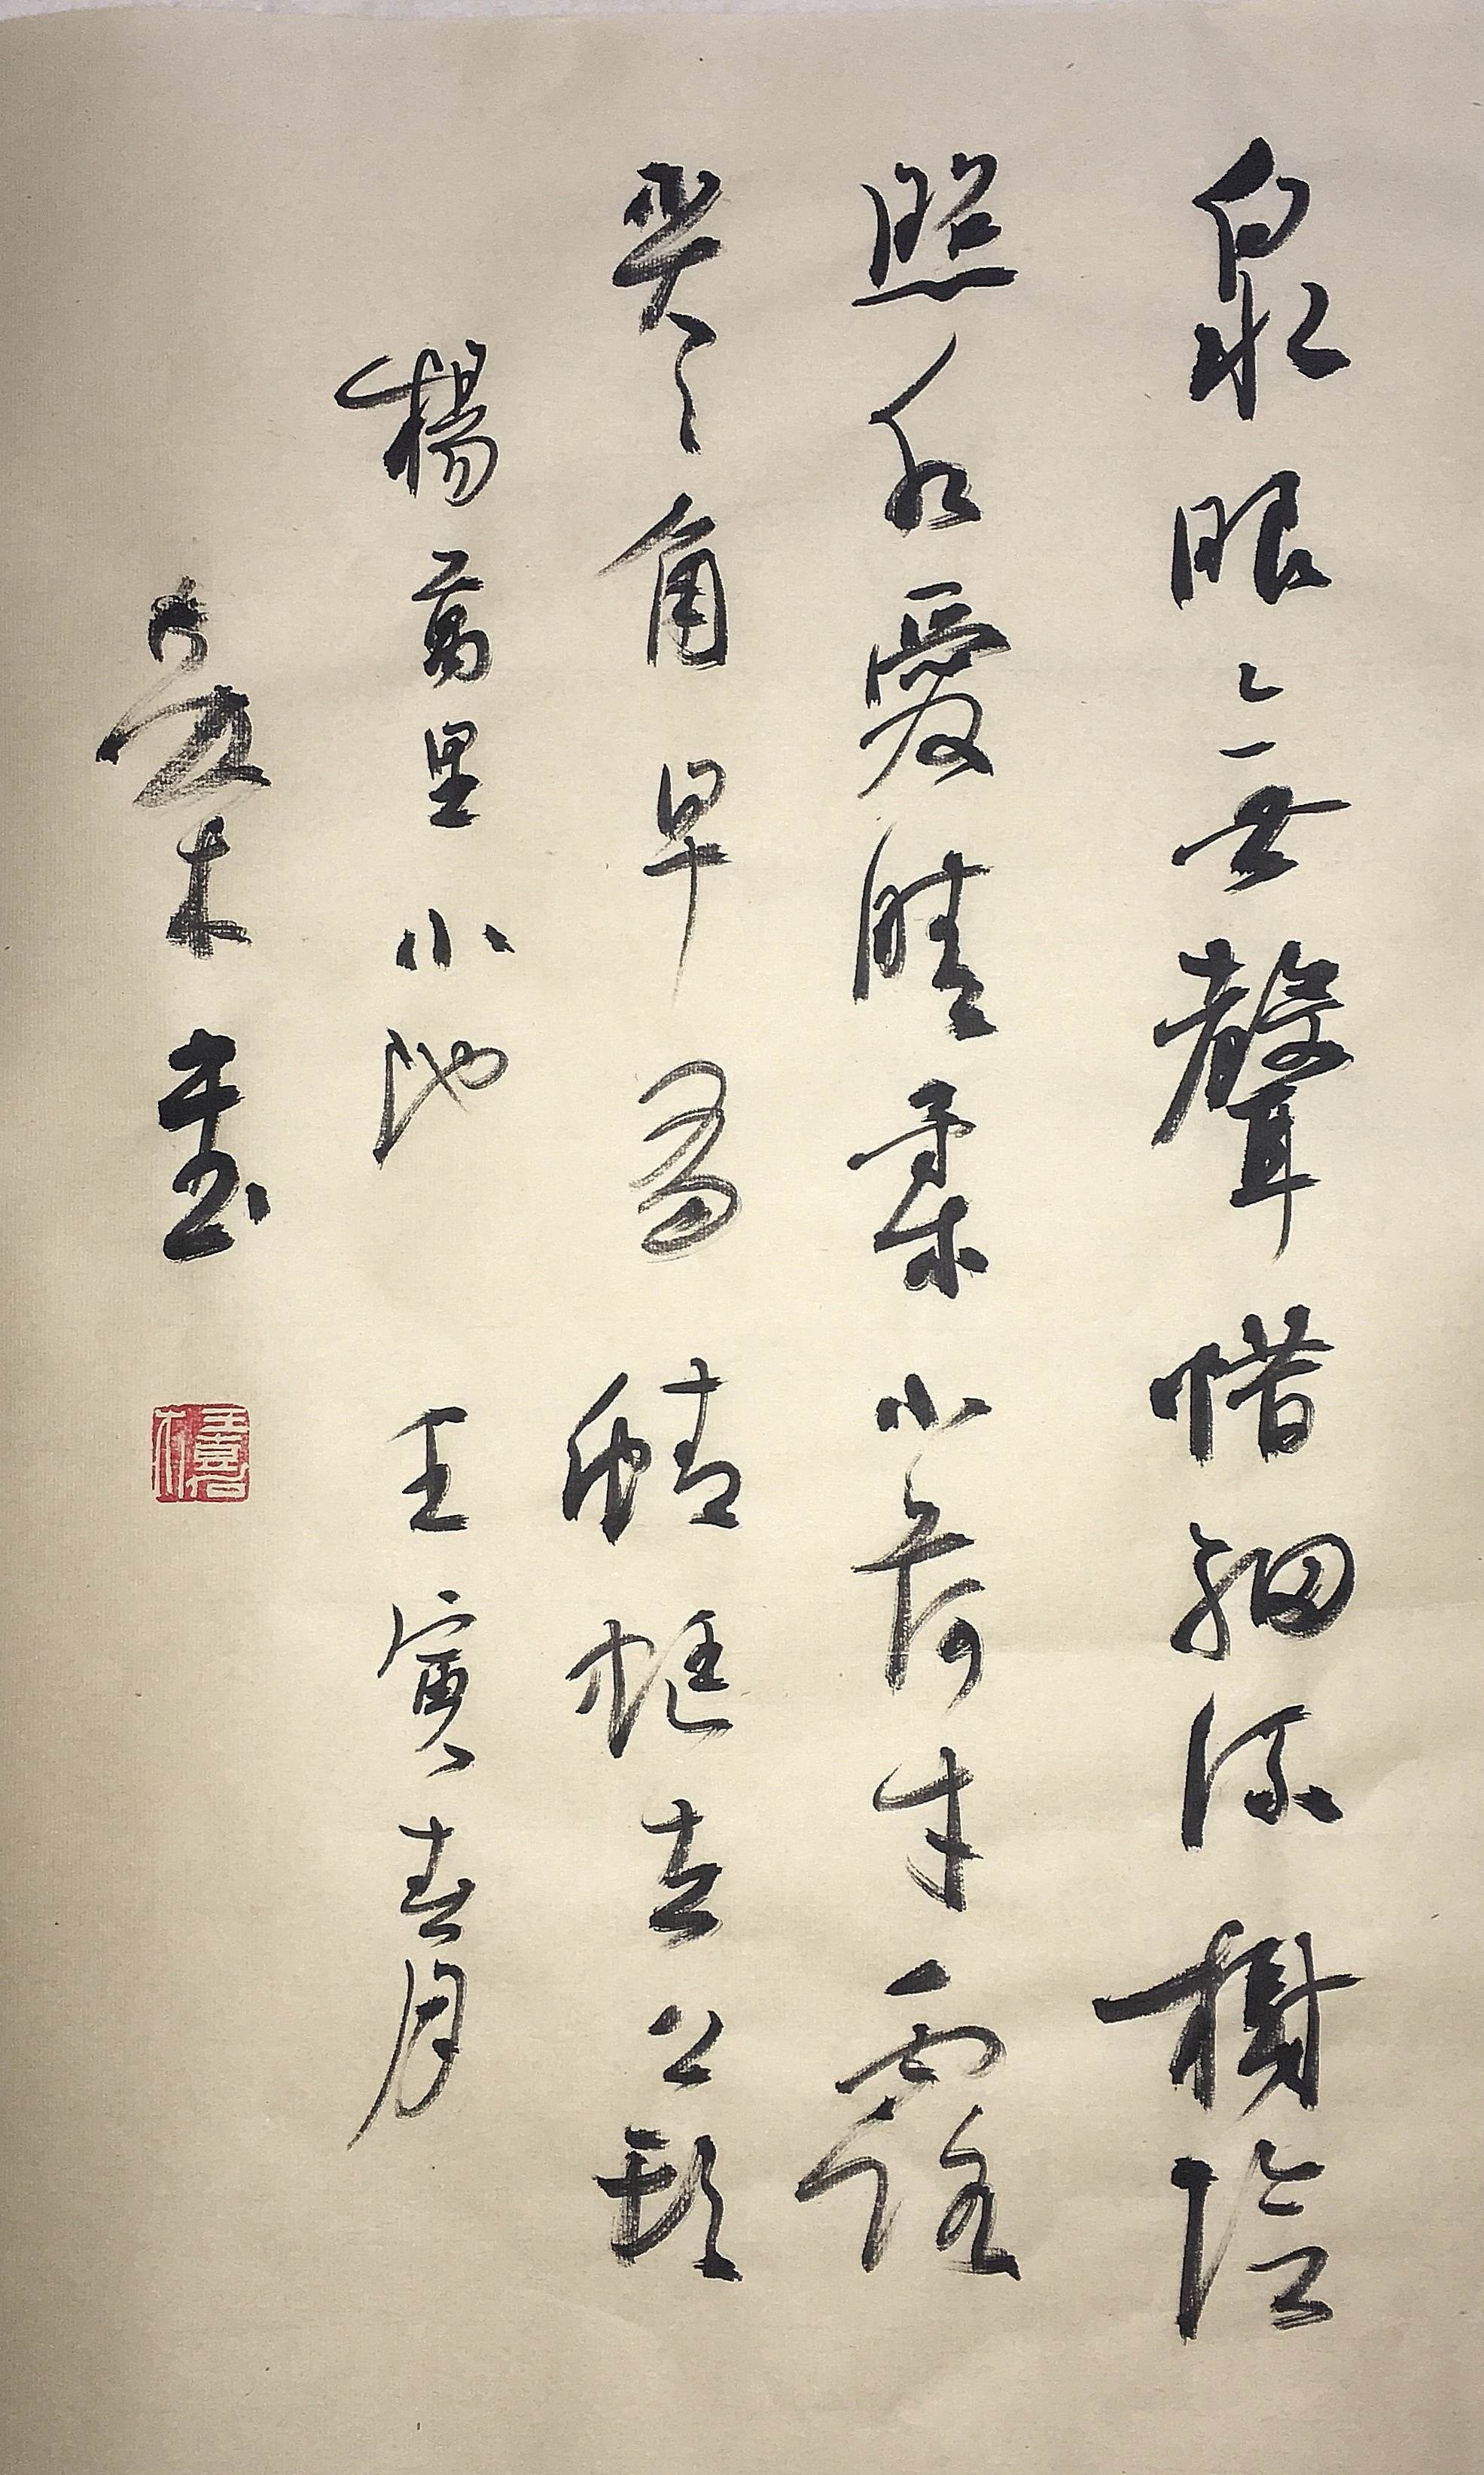 泉眼無聲惜細流樹陰
照水愛晴柔小荷才露
尖尖角早有蜻蜓立上頭
楊萬里小池 壬寅春月
木書